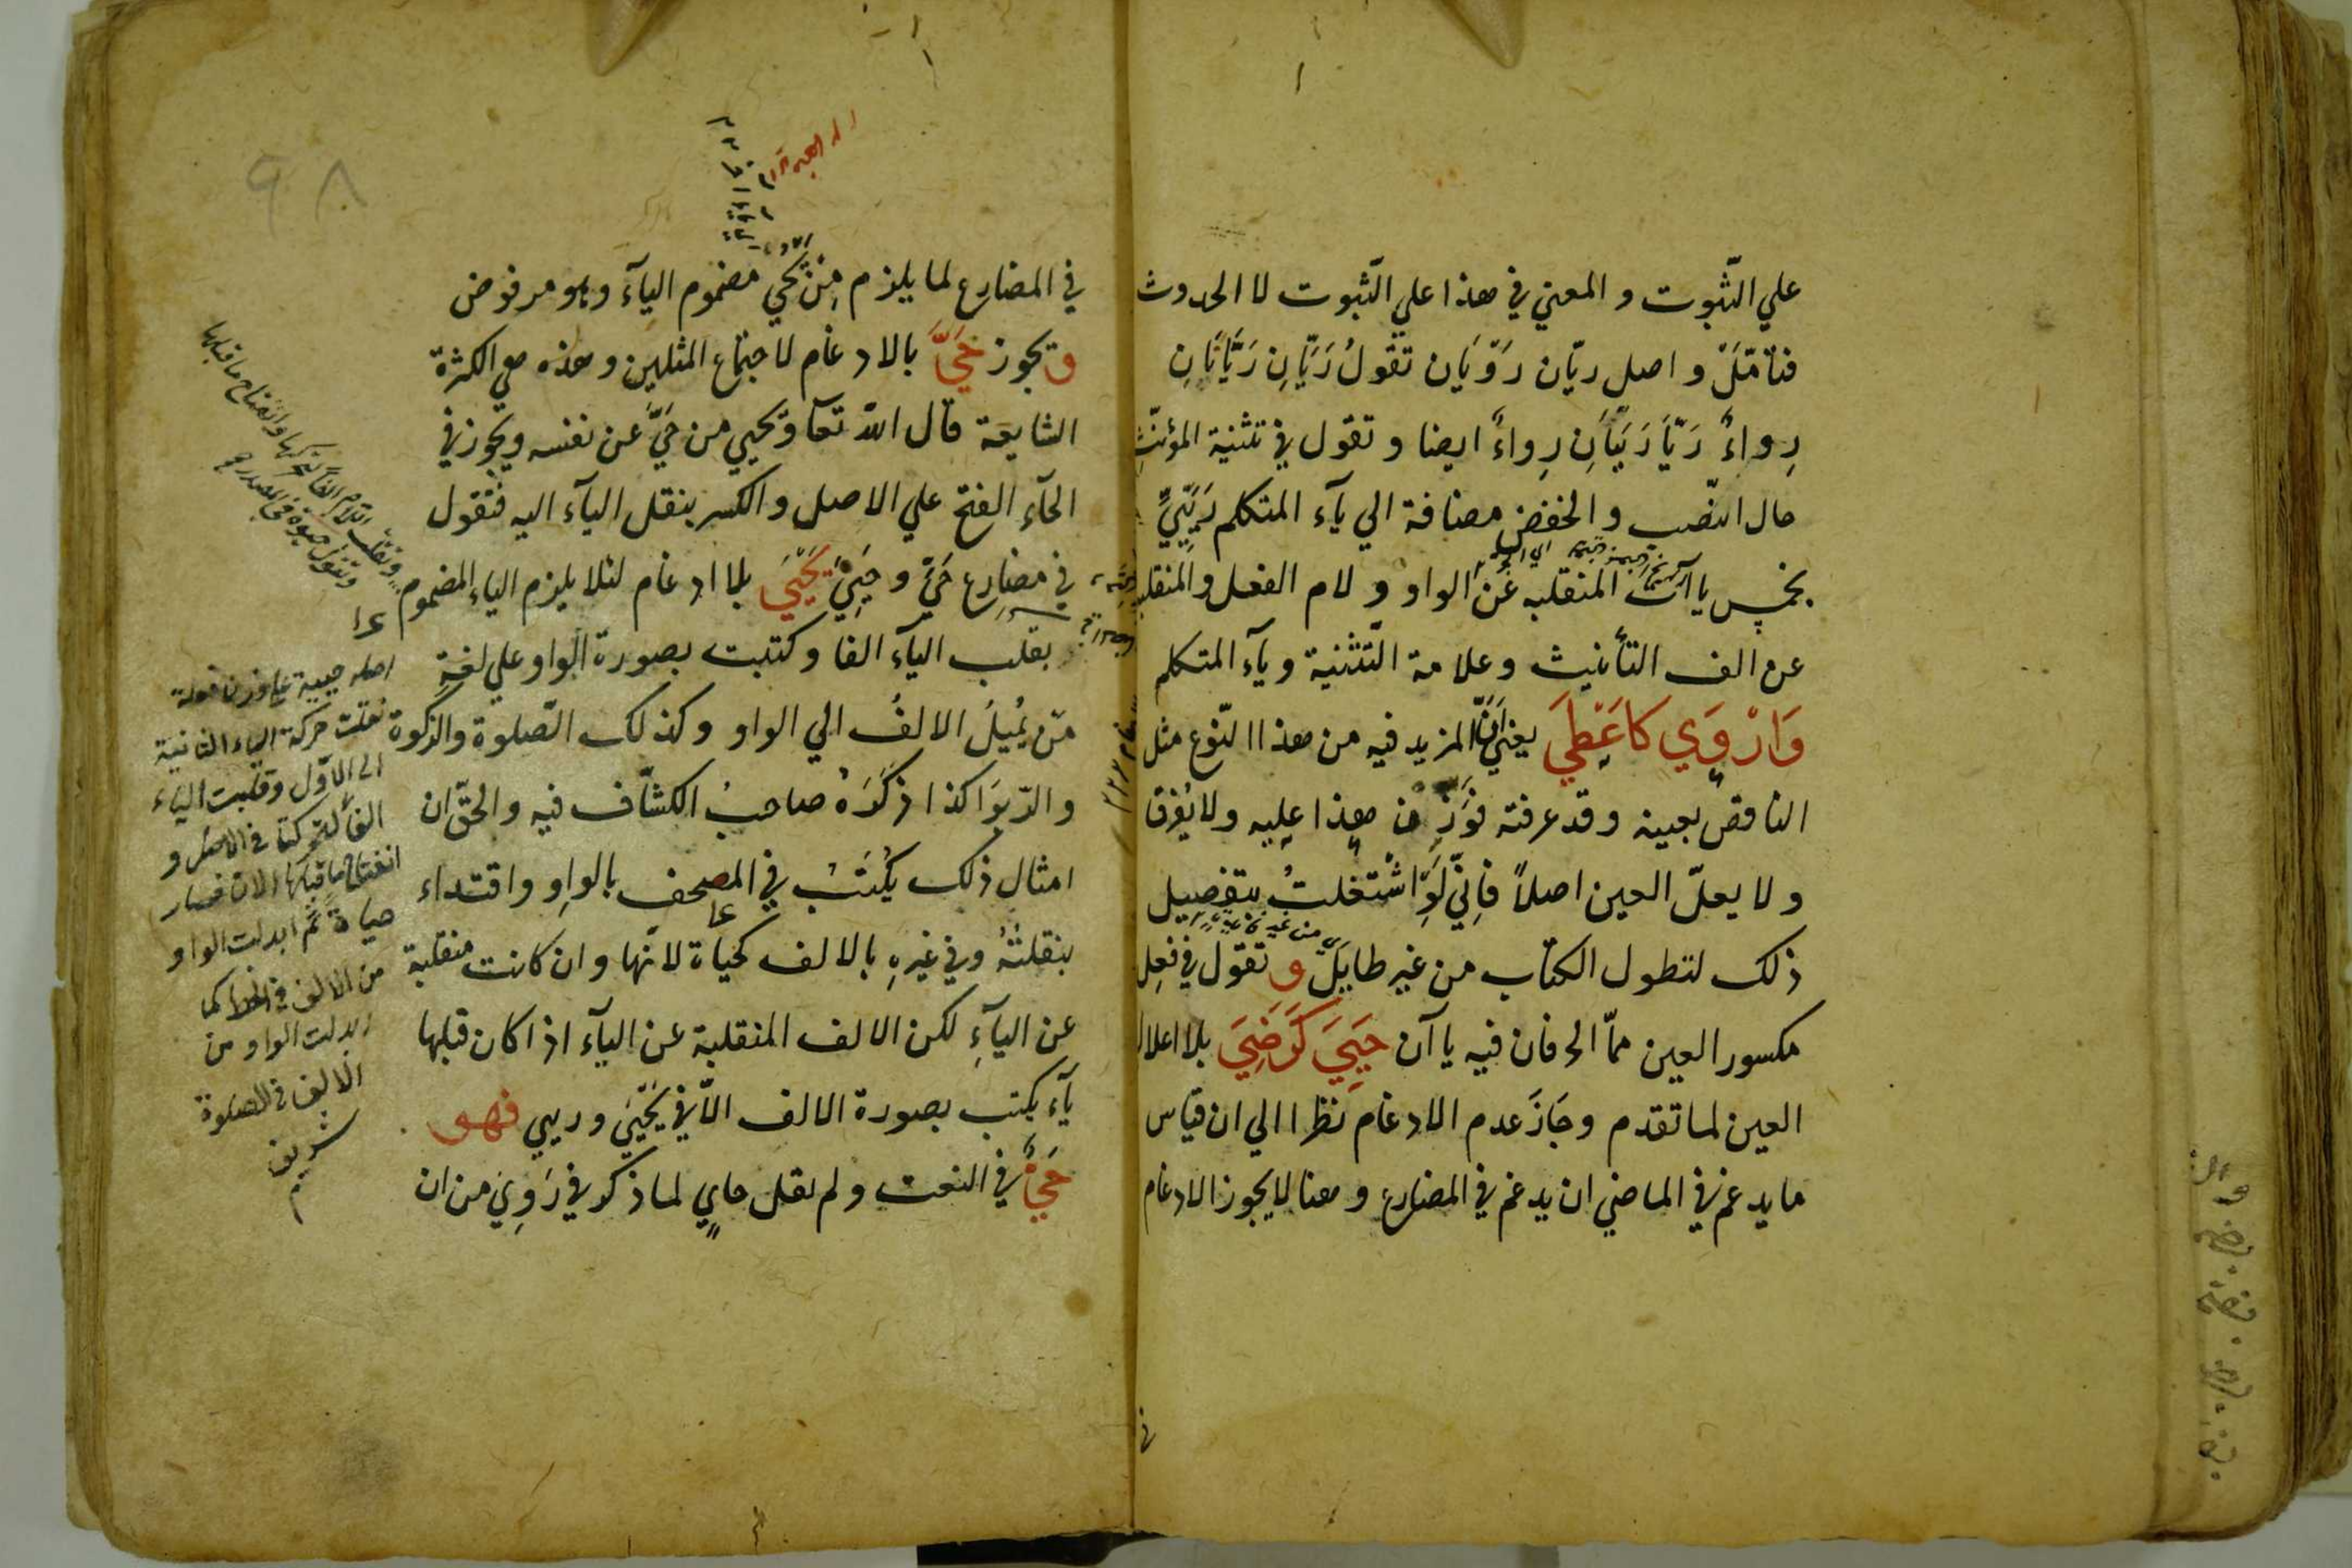 علي الثّبوت و المعني في هذا علي الثّبوت لا الحدوث
فتأمّل و اصل ريّان رَوْيَان تقولُ رَيَّانِ رَيَّانَانِ
رِواءٌ رَيَّا رَيَّيَانِ رِواءٌ ايضا و تقول في تثنية المؤنّث
حال النّصب و الخفض مضافة الي يآء المتكلم رَيَّيَيَّ
بخمس ياآت المنقلبه عن الواو و لام الفعل والمنقلبه
عن الف التأنيث وعلامة التّثنية ويآء المتكلم
وَاَرْوَي كَاَعْطَيَ يعني اَنّ المزيد فيه من هذا النّوع مثل
الناقص بعينه وقد عرفته فَوَزِن هذا عليه ولا يُفرّق
و لا يعلّ العين اصلاً فاِنّي لَوِ اشْتغلتُ بتفصيل
ذلك لتطول الكتاب من غير طايل و تقول في فعِل
مكسور العين ممّا الحرفان فيه ياآن حَيِيَ كَرَضِيَ بلا اعلال
العين لما تقدم وجَازَ عدم الادغام نظرا الي ان قياس
ما يدغم في الماضي ان يدغم في المضارع وهنا لا يجوز الادغام
في المضارع لما يلزم مِن يَحَيُّ مضموم اليآء وهو مرفوض
ويجوز حَيَّ بالادغام لاجتماع المثلين و هذه هي الكثرة
الشايعة قال اللّه تعآ ويحيي من حَيَّ عن نفسه ويجوز في
الحآء الفتح علي الاصل والكسر بنقل اليآء اليه فتقول
في مضارع حَيَّ و حَيِيَ يَحْيَي بلا ادغام لئلا يلزم الياء المضموم
بقلب اليآء الفا و كتبت بصورة الواو علي لغةِ
مَن يُميلُ الالفُ الي الواو وكذلك الصّلوة والزكوة
و الرّبوَا كذا ذكَرَهُ صاحبُ الكشّاف فيه والحقّ ان
امثال ذلك يُكْتَبُ في المصحف بالواوِ واقتداء
بنقلتُهُ وفي غيرِهِ بالالف كحياة لانّها وان كانت منقلبة
عن اليآءِ لكن الالف المنقلبة عن اليآء اذا كان قبلها
يآء يكتب بصورة الالف الّا في يَحْيَي و ريي فهو
حَيٌّ في النعت و لم يقل حايٍ لما ذكر في رَوِيَ من ان
اصله حيية علي وزن فعلة
نقلت حركة الياء الثانية
الي الاوّل وقلبت الياء
الفا لتحركتا في الاصل و
انفتاح ما قبلها الان فصار
حياة ثم ابدلت الواو
من الالف في الخط كما
ابدلت الواو من
الالف في الصلوة
شريف